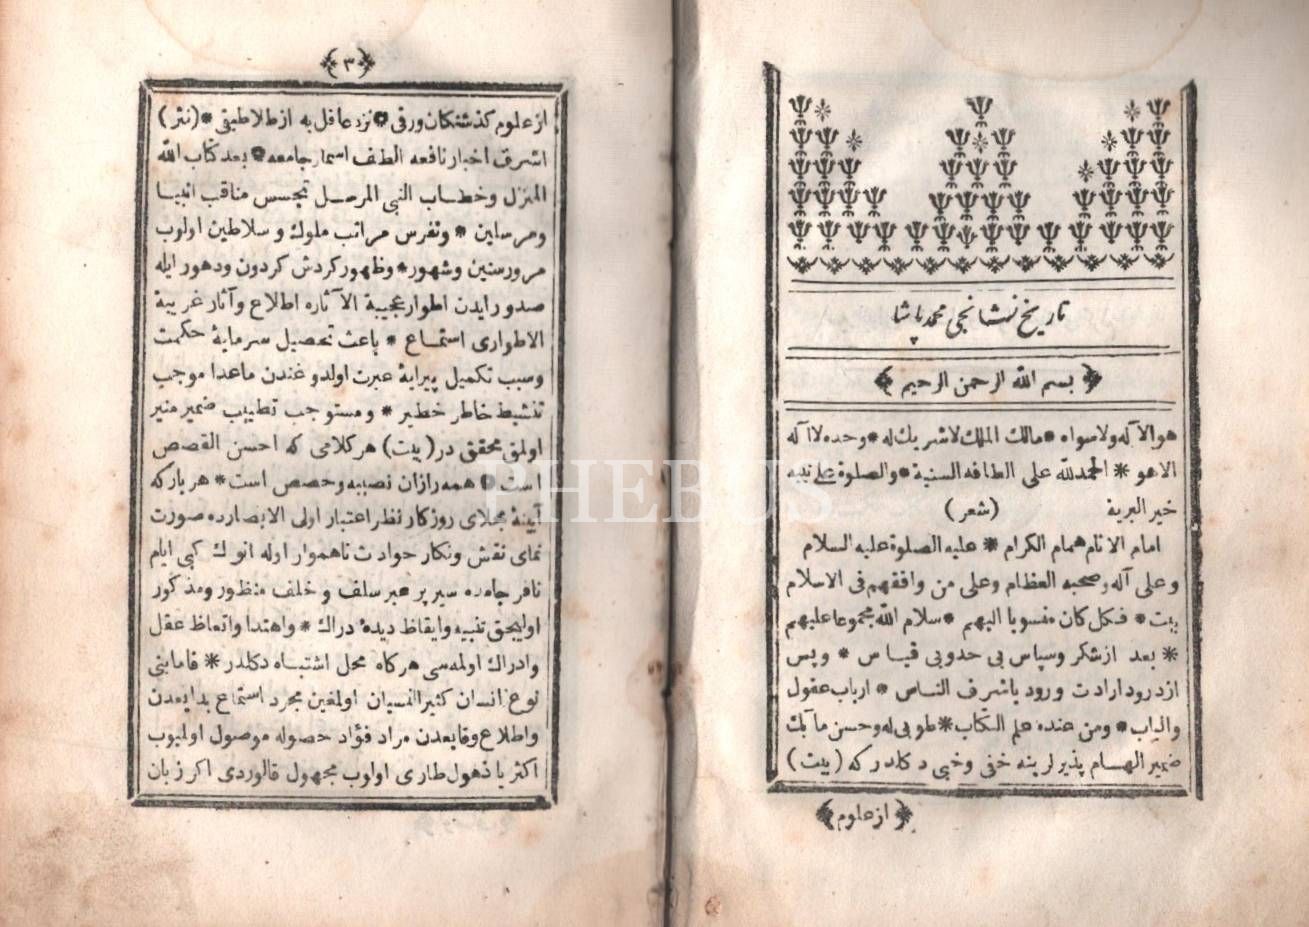 تاريخ نشانجى محمد پاشا
بسم الله الرحمن الرحيم
هو الاآله ولا سواه * مالك الملك لاشريك له * وحده لا اله
الا هو * الحمد لله على الطافه السنية * والصلوة على نبيه
خير البرية (شعر)
امام الانام همام الكرام * عليه الصلوة عليه السلام
وعلى آله وصحبه العظام وعلى من وافقهم فى الاسلام
بيت * فكل كان منسوبا اليهم * سلام الله مجموعا عليهم
* بعد ازشكر وسپاس بى حدوبى قياس * وپس
ازدرود ارادت ورود باشرف الناس * ارباب عقول
والباب * ومن عنده علم الكتاب * طوبى له وحسن مآبك
ضمير الهام پذيرلرينه خفى وخبى دكلدر كه (بيت)
ازعلوم
٣
ازعلوم كذشتكان ورقى * نزد عاقل به ازطلا طبقى * (نثر)
اشرف اخبار نافعه الطف اسمار جامعه * بعد كتاب الله
المنزل وخطاب النبى المرسل تجسس مناقب انبيا
ومرسلين * وتفرس مراتب ملوك وسلاطين اولوب
مرور سنين وشهور * وظهور كردش كردون ودهور ايله
صدور ايدن اطوار عجيبة الآثاره اطلاع وآثار غريبة
الاطوارى استماع * باعث تحصيل سرمايۀ حكمت
وسبب تكميل پيرايۀ عبرت اولدوغندن ماعدا موجب
تنشيط خاطر خطير * ومستوجب تطييب ضمير منير
اولمق محقق در (بيت) هر كلامى كه احسن القصص
است * همه رازان نصيبه وحصص است * هر بار كه
آيينۀ مجلاى روزكار نظر اعتبار اولى الابصارده صورت
نماى نقش ونكار حوادث ناهموار اوله انوك كبى ايام
نافرجامده سير پر عبر سلف وخلف منظور ومذكور
اوليجق تنبيه وايقاظ ديدۀ دراك * واهتدا واتعاظ عقل
وادراك اولمه سى هركاه محل اشتباه دكلدر * فاما بنى
نوع انسان كثير النسيان اولمغين مجرد استماع بدايعدن
واطلاع وقايعدن مراد فؤاد حصوله موصول اولميوب
اكثريا ذهول طارى اولوب مجهول قالوردى اكر زبان
PHEBUS